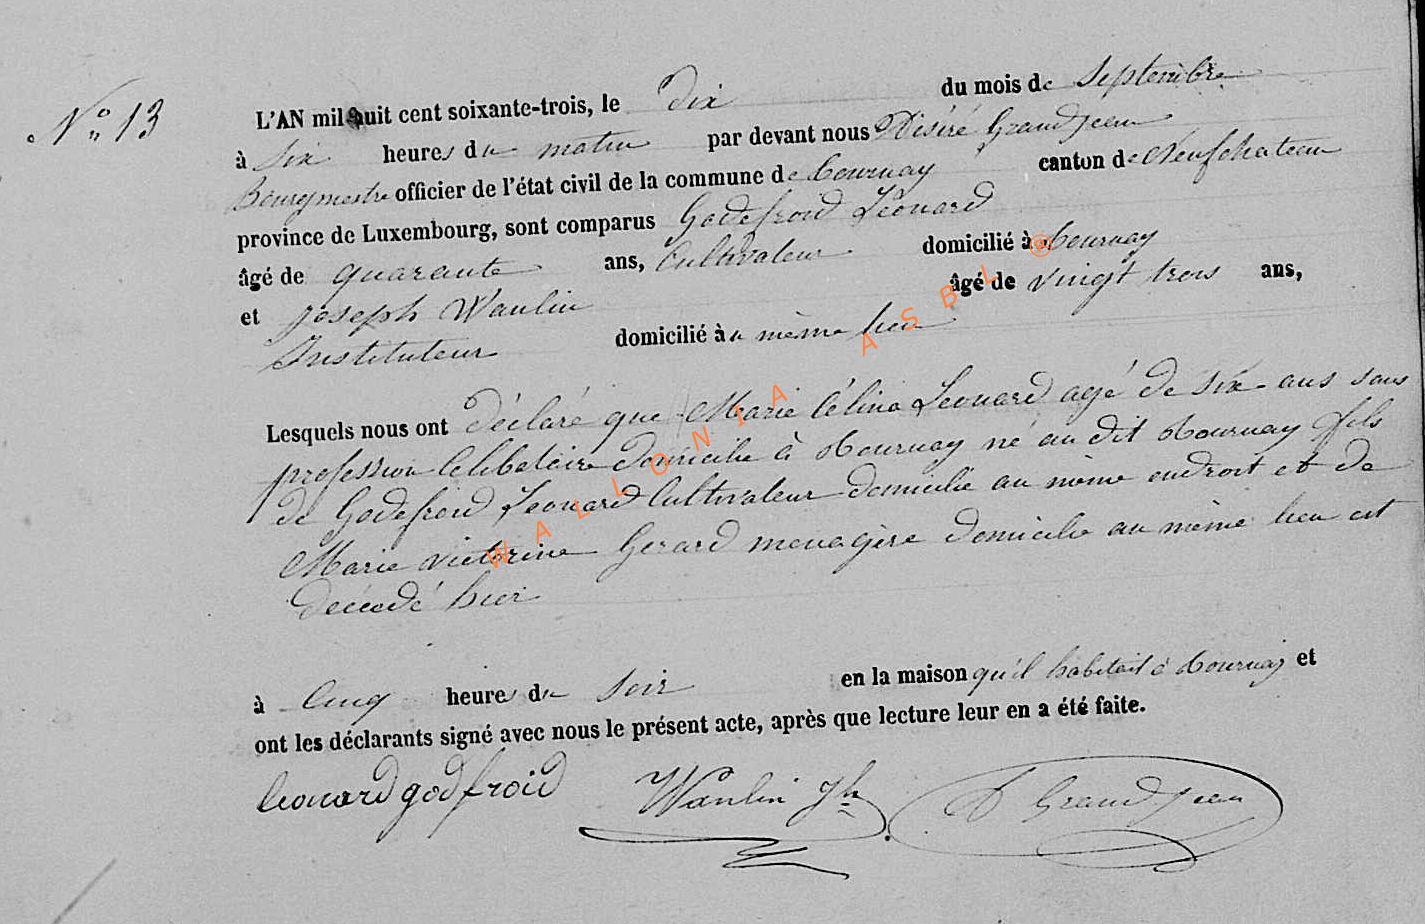 N° 13
L'AN mil huit cent soixante-trois, le dix du mois de Septembre
à Six heures du matin par devant nous Désiré Grandjean
Bourgmestre officier de l'état civil de la commune de Tournay canton de Neufchateau
province de Luxembourg, sont comparus Godefroid Léonard
âgé de quarante ans, Cultivateur domicilié à Tournay
et Joseph Wanlin âgé de vingt trois ans,
Instituteur domicilié au même lieu
Lesquels nous ont déclaré que Marie Célina Léonard agé de six ans sans
profession Célibataire domicilié à Tournay né au dit Tournay fils
de Godefroid Léonard Cultivateur domicilié au même endroit et de
Marie victorine Gerard menagère domicilié au même lieu est
décédé hier
à Cinq heures du Soir en la maison qu'il habitait à Tournay et
ont les déclarants signé avec nous le présent acte, après que lecture leur en a été faite.
leonard godfroid Wanlin Jh D Grandjean
WALLONIA ASBL @